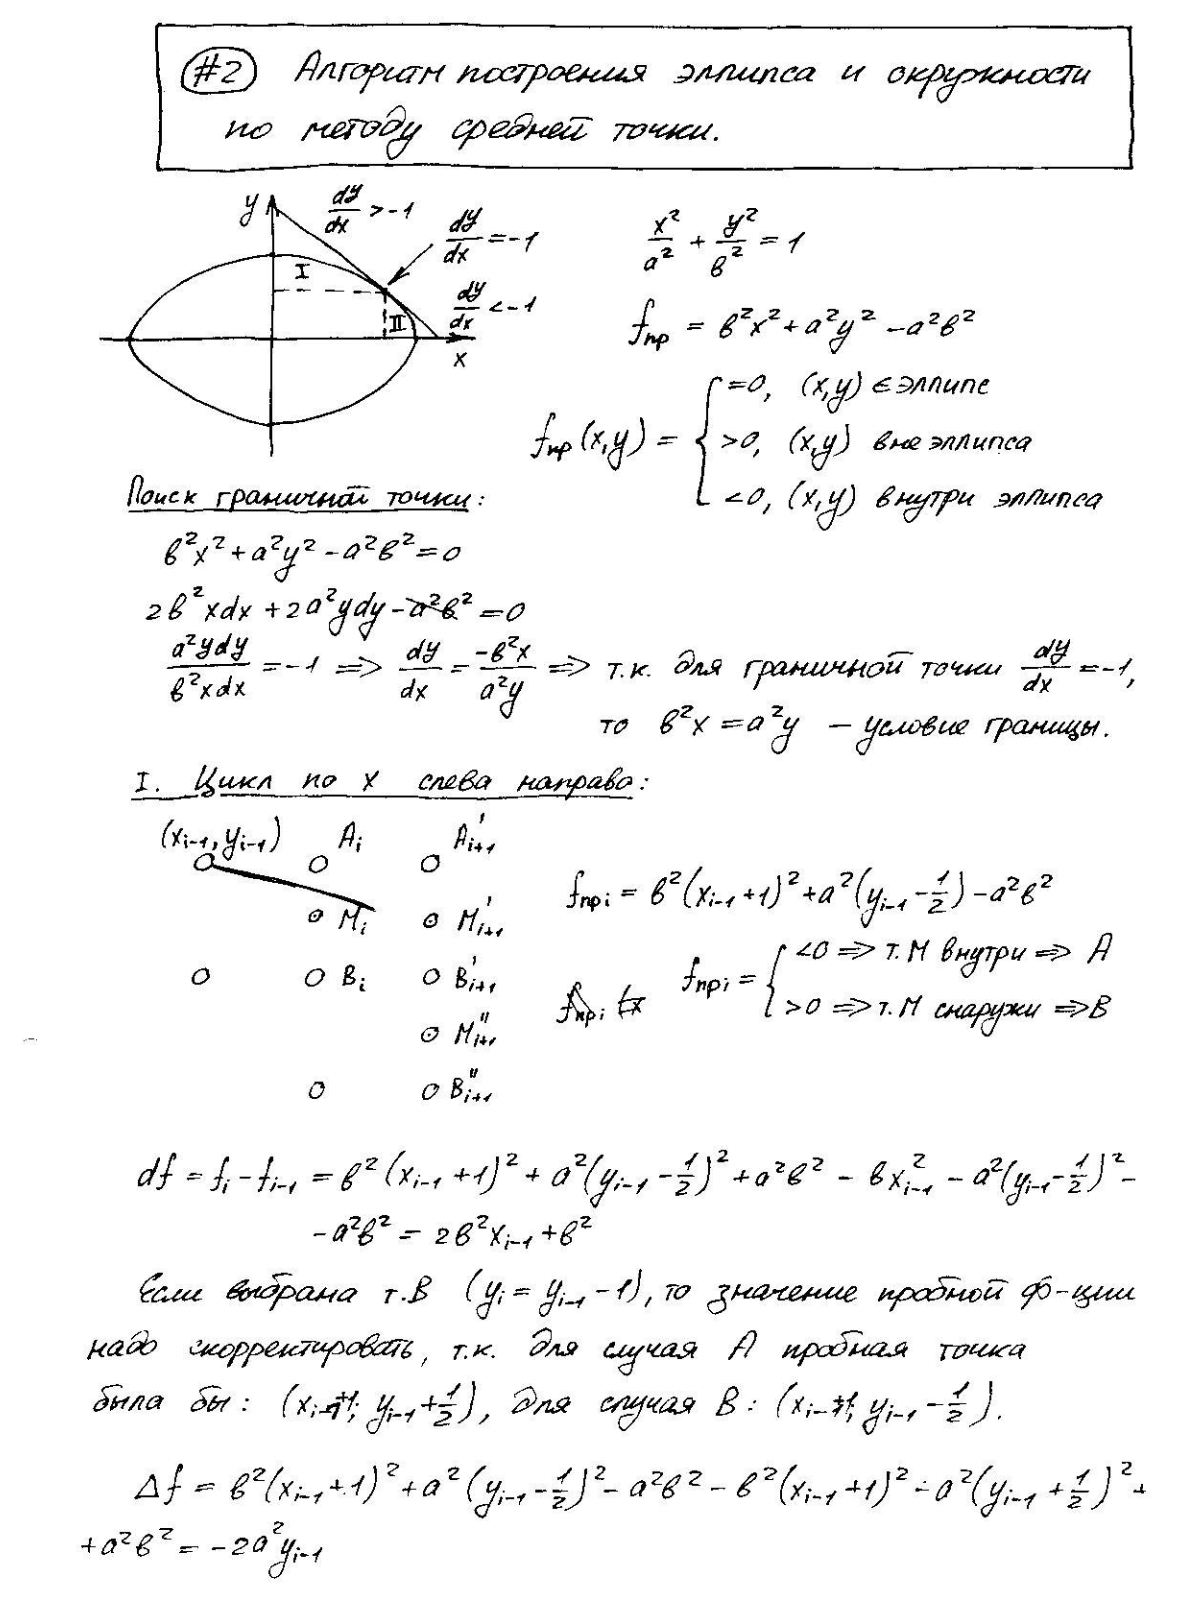 #2 Алгоритм построения эллипса и окружности
по методу средней точки.
y dy/dx > -1
dy/dx = -1
I
dy/dx < -1
II
x
x²/a² + y²/в² = 1
fпр = в²x² + a²y² - a²в²
fпр(x,y) = { =0, (x,y) ∈ эллипс
>0, (x,y) вне эллипса
<0, (x,y) внутри эллипса
Поиск граничной точки:
в²x² + a²y² - a²в² = 0
2в²xdx + 2a²ydy - a²в² = 0
a²ydy/в²xdx = -1 => dy/dx = -в²x/a²y => т.к. для граничной точки dy/dx = -1,
то в²x = a²y – условие границы.
I. Цикл по x слева направо:
(xi-1, yi-1) Ai A'i+1
Mi M'i+1
Bi B'i+1
M''i+1
B''i+1
fпрi = в²(xi-1+1)² + a²(yi-1 - 1/2) - a²в²
fпрi = { <0 => т.М внутри => А
>0 => т.М снаружи => В
fпрi
df = fi - fi-1 = в²(xi-1+1)² + a²(yi-1 - 1/2)² + a²в² - вx²i-1 - a²(yi-1 - 1/2)² -
- a²в² = 2в²xi-1 + в²
Если выбрана т.В (yi = yi-1 - 1), то значение пробной ф-ции
надо скорректировать, т.к. для случая А пробная точка
была бы: (xi-1+1; yi-1 + 1/2), для случая В: (xi-1+1; yi-1 - 1/2).
Δf = в²(xi-1+1)² + a²(yi-1 - 1/2)² - a²в² - в²(xi-1+1)² - a²(yi-1 + 1/2)² +
+ a²в² = -2a²yi-1